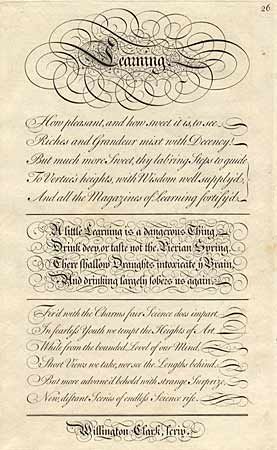 26
Learning
How pleasant, and how sweet it is, to see
Riches and Grandeur mixt with Decency!
But much more Sweet, thy lab'ring Steps to guide
To Vertue's heights, with Wisdom well supply'd,
And all the Magazines of learning fortify'd.
A little Learning is a dangerous Thing,
Drink deep or taste not the Pierian Spring.
There shallow Draughts intoxicate ye Brain,
And drinking largely sobers us again.
Fir'd with the Charms fair Science does impart
In fearless Youth we tempt the Heights of Art
While from the bounded Level of our Mind,
Short Views we take, nor see the Lengths behind,
But more advanc'd behold with strange Surprize,
New, distant Scenes of endless Science rise.
Willington Clark, scrip.